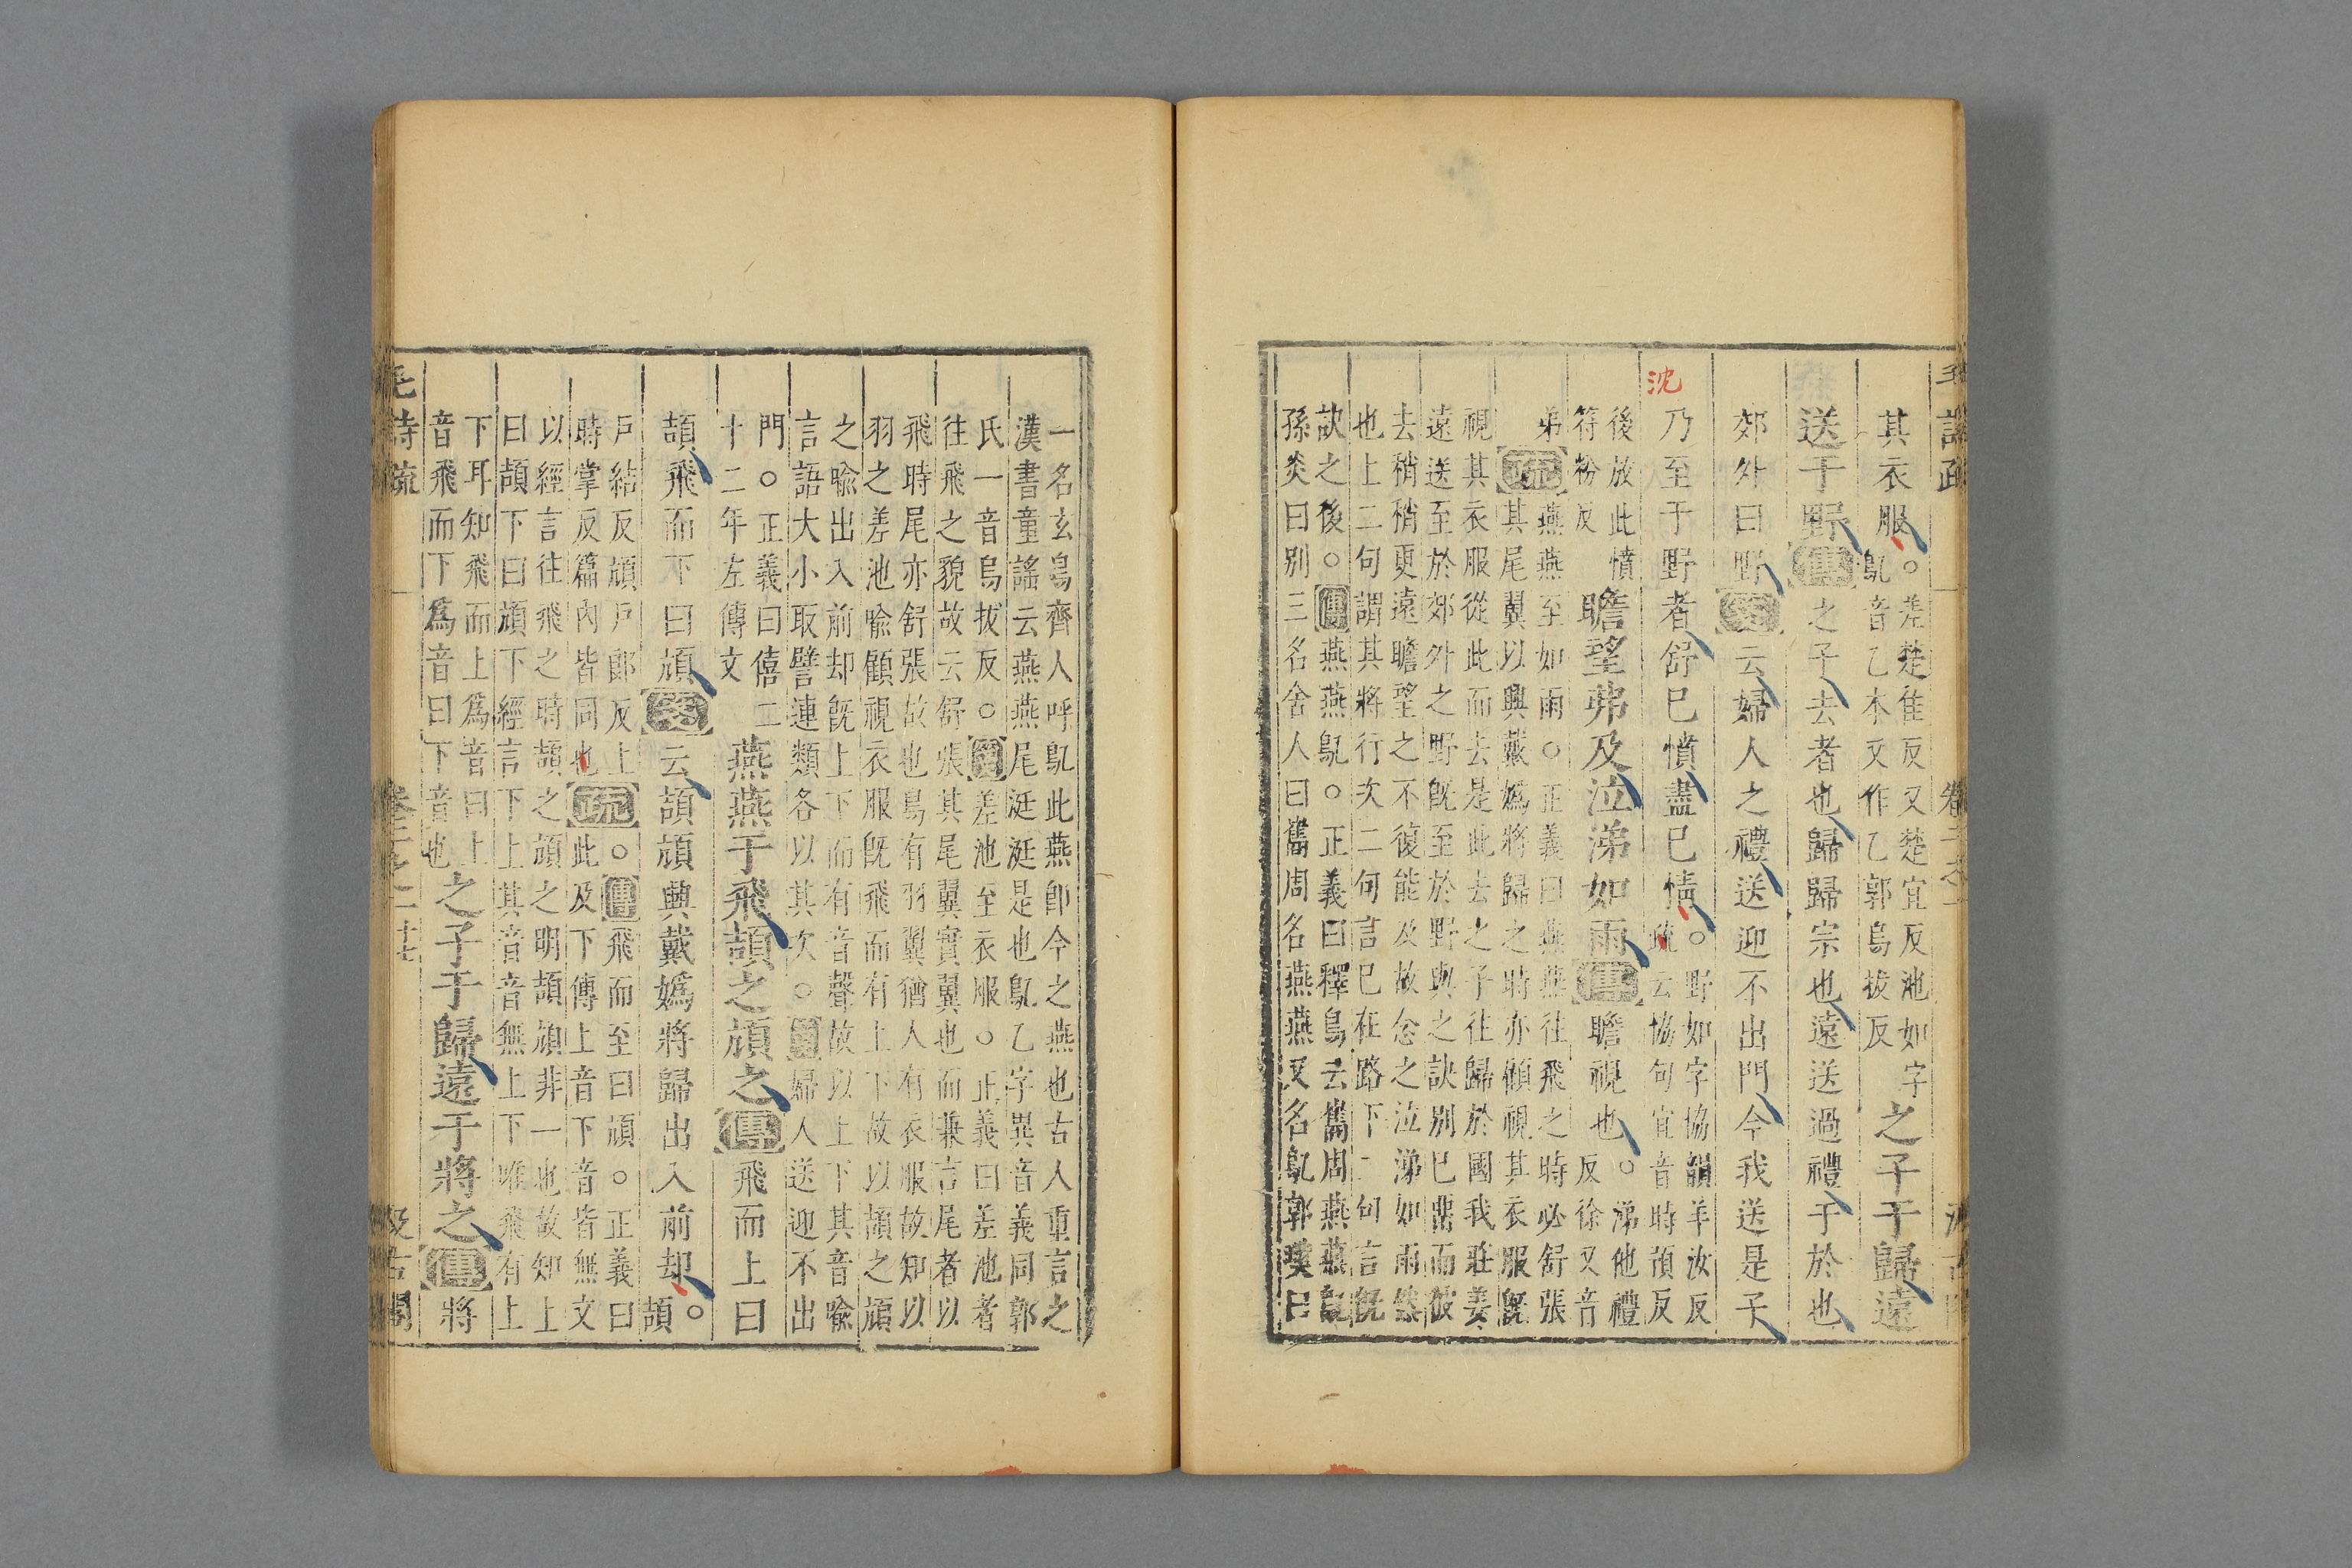 其衣服○差楚隹反又楚宜反池如字
鳦音乙本又作乙郭烏拔反之子于歸遠
送于野傳之子去者也歸歸宗也遠送過禮于於也
郊外曰野箋云婦人之禮送迎不出門今我送是子
沈
乃至于野者舒已憤盡已情○野如字協韻羊汝反
疏云協句宜音時預反
後放此憤
符粉反瞻望弗及泣涕如雨傳瞻視也○涕他禮
反徐又音
弟疏燕燕至如雨○正義曰燕燕往飛之時必舒張
其尾翼以興戴媯將歸之時亦顧視其衣服既
視其衣服從此而去是此去之子往歸於國我莊姜
遠送至於郊外之野既至於野與之訣別已留而彼
去稍稍更遠瞻望之不復能及故念之泣涕如雨然
也上二句謂其將行次二句言已在路下二句言既
訣之後○傳燕燕鳦○正義曰釋鳥云巂周燕燕鳦
孫炎曰別三名舍人曰巂周名燕燕又名鳦郭璞曰
一名玄鳥齊人呼鳦此燕卽今之燕也古人重言之
漢書童謠云燕燕尾涎涎是也鳦乙字異音義同郭
氏一音烏拔反○箋差池至衣服○正義曰差池者
往飛之貌故云舒張其尾翼實翼也而兼言尾者以
飛時尾亦舒張故也鳥有羽翼猶人有衣服故知以
羽之差池喻顧視衣服既飛而有上下故以頡之頏
之喻出入前却既上下而有音聲故以上下其音喻
言語大小取譬連類各以其次○箋婦人送迎不出
門○正義曰僖二
十二年左傳文燕燕于飛頡之頏之傳飛而上曰
頡飛而下曰頏箋云頡頏興戴媯將歸出入前却○頡
戶結反頏戶郎反上
時掌反篇內皆同也疏○傳飛而至曰頏○正義曰
此及下傳上音下音皆無文
以經言往飛之時頡之頏之明頡頏非一也故知上
曰頡下曰頏下經言下上其音音無上下唯飛有上
下耳知飛而上爲音曰上
音飛而下爲音曰下音也之子于歸遠于將之傳將
毛詩疏 卷二之一 十七 汲古閣